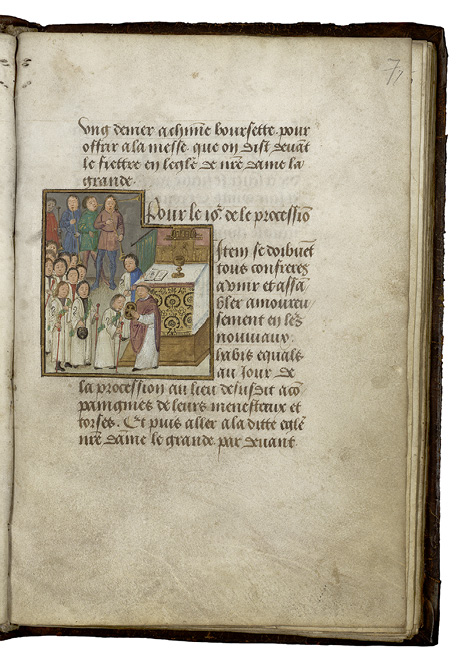 7
vng denier a chūne boursette pour
offrir a la messe que on dist deuāt
le fiertre en leglē de nrē dame la
grande.
Pour le io.ͬ de le processiō
Item se doibuēt
tous confreres
a vnir et assā
bler amoureu
sement en lez
nouuiaux
habis equals
au iour de
la procession au lieu desusdit acō
paingnies de leurs menestreux et
torses. Et puis aller a la ditte eglē
nrē dame le grande par deuant